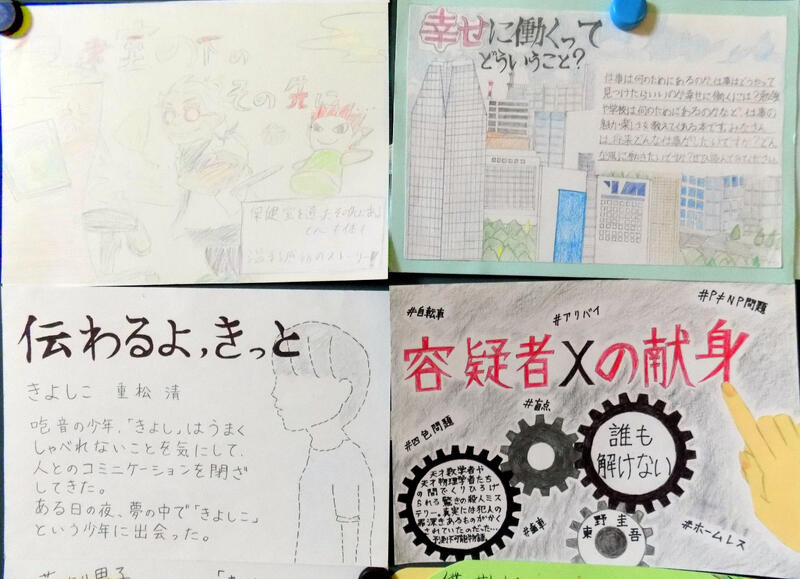 室の下の
その先に
保健室を
ストーリー!!
幸せに働くって
どういうこと?
仕事は何のためにあるのか、仕事はどうやって
見つけたらいいのか、幸せに働くには?勉強
や学校は何のためにあるのかなど、仕事の
魅力や楽しさを教えてくれる本です。みなさん
は、将来どんな仕事がしたいですか?どん
な風に働きたいですか?ぜひ読んでみてください。
伝わるよ,きっと
きよしこ 重松 清
吃音の少年、「きよし」はうまく
しゃべれないことを気にして、
人とのコミニケーションを閉ざ
してきた。
ある日の夜、夢の中で「きよしこ」
という少年に出会った。
#自転車
#アリバイ
#P≠NP問題
容疑者Xの献身
#盲点
#四色問題
誰も
解けない
天才数学者や
天才物理学者たち
の間でくりひろげ
られる驚きの殺人ミス
テリー。真実には犯人の
罪深きあるものがかく
されていたのだった…
予測不可能物語。
#歯車
東野圭吾
#ホームレス